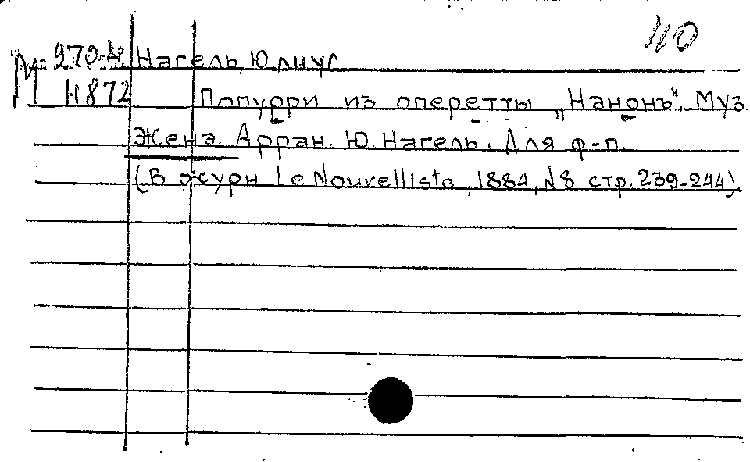 40
М 270-4 Нагель, Юлиус
Н872 Попурри из оперетты „Нанонъ". Муз.
Женэ. Арран. Ю. Нагель. Для ф-п.
(В журн. Le Nouvelliste, 1884, №8 стр. 239-244)